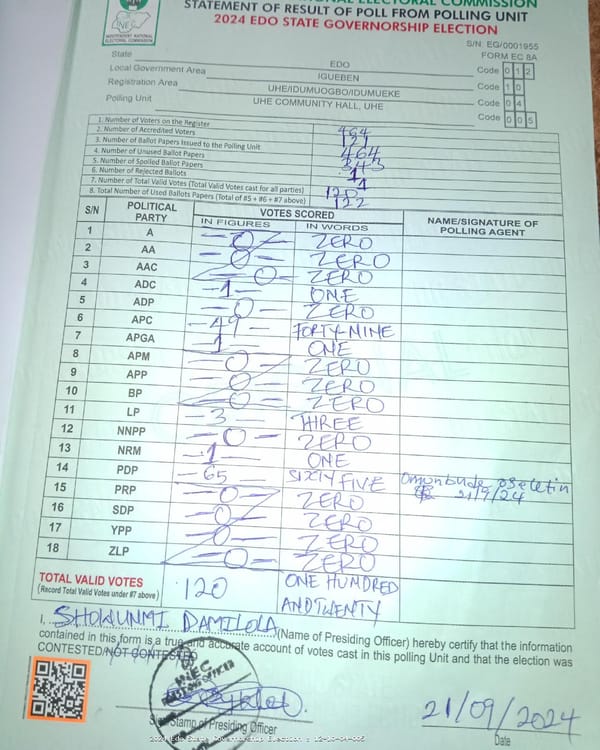 INDEPENDENT NATIONAL ELECTORAL COMMISSION
STATEMENT OF RESULT OF POLL FROM POLLING UNIT
2024 EDO STATE GOVERNORSHIP ELECTION
S/N: EG/0001955
FORM EC 8A
State EDO Code 0 1 2
Local Government Area IGUEBEN Code 1 0
Registration Area UHE/IDUMUOGBO/IDUMUEKE Code 0 4
Polling Unit UHE COMMUNITY HALL, UHE Code 0 0 5
1. Number of Voters on the Register 464
2. Number of Accredited Voters
3. Number of Ballot Papers Issued to the Polling Unit 464
4. Number of Unused Ballot Papers 343
5. Number of Spoiled Ballot Papers 1
6. Number of Rejected Ballots 1
7. Number of Total Valid Votes (Total Valid Votes cast for all parties) 120
8. Total Number of Used Ballots Papers (Total of #5 + #6 + #7 above) 122
S/N POLITICAL PARTY VOTES SCORED NAME/SIGNATURE OF POLLING AGENT
IN FIGURES IN WORDS
1 A -0- ZERO
2 AA -0- ZERO
3 AAC -0- ZERO
4 ADC -1- ONE
5 ADP -0- ZERO
6 APC -49- FORTY-NINE
7 APGA -1- ONE
8 APM -0- ZERO
9 APP -0- ZERO
10 BP -0- ZERO
11 LP -3- THREE
12 NNPP -0- ZERO
13 NRM -1- ONE
14 PDP -65- SIXTY FIVE 21/9/24
15 PRP -0- ZERO
16 SDP -0- ZERO
17 YPP -0- ZERO
18 ZLP -0- ZERO
TOTAL VALID VOTES 120 ONE HUNDRED
(Record Total Valid Votes under #7 above) AND TWENTY
I, SHOWUNMI DAMILOLA (Name of Presiding Officer) hereby certify that the information
contained in this form is a true and accurate account of votes cast in this polling Unit and that the election was
CONTESTED/NOT CONTESTED
INEC
Stamp of Presiding Officer
21/09/2024
Date